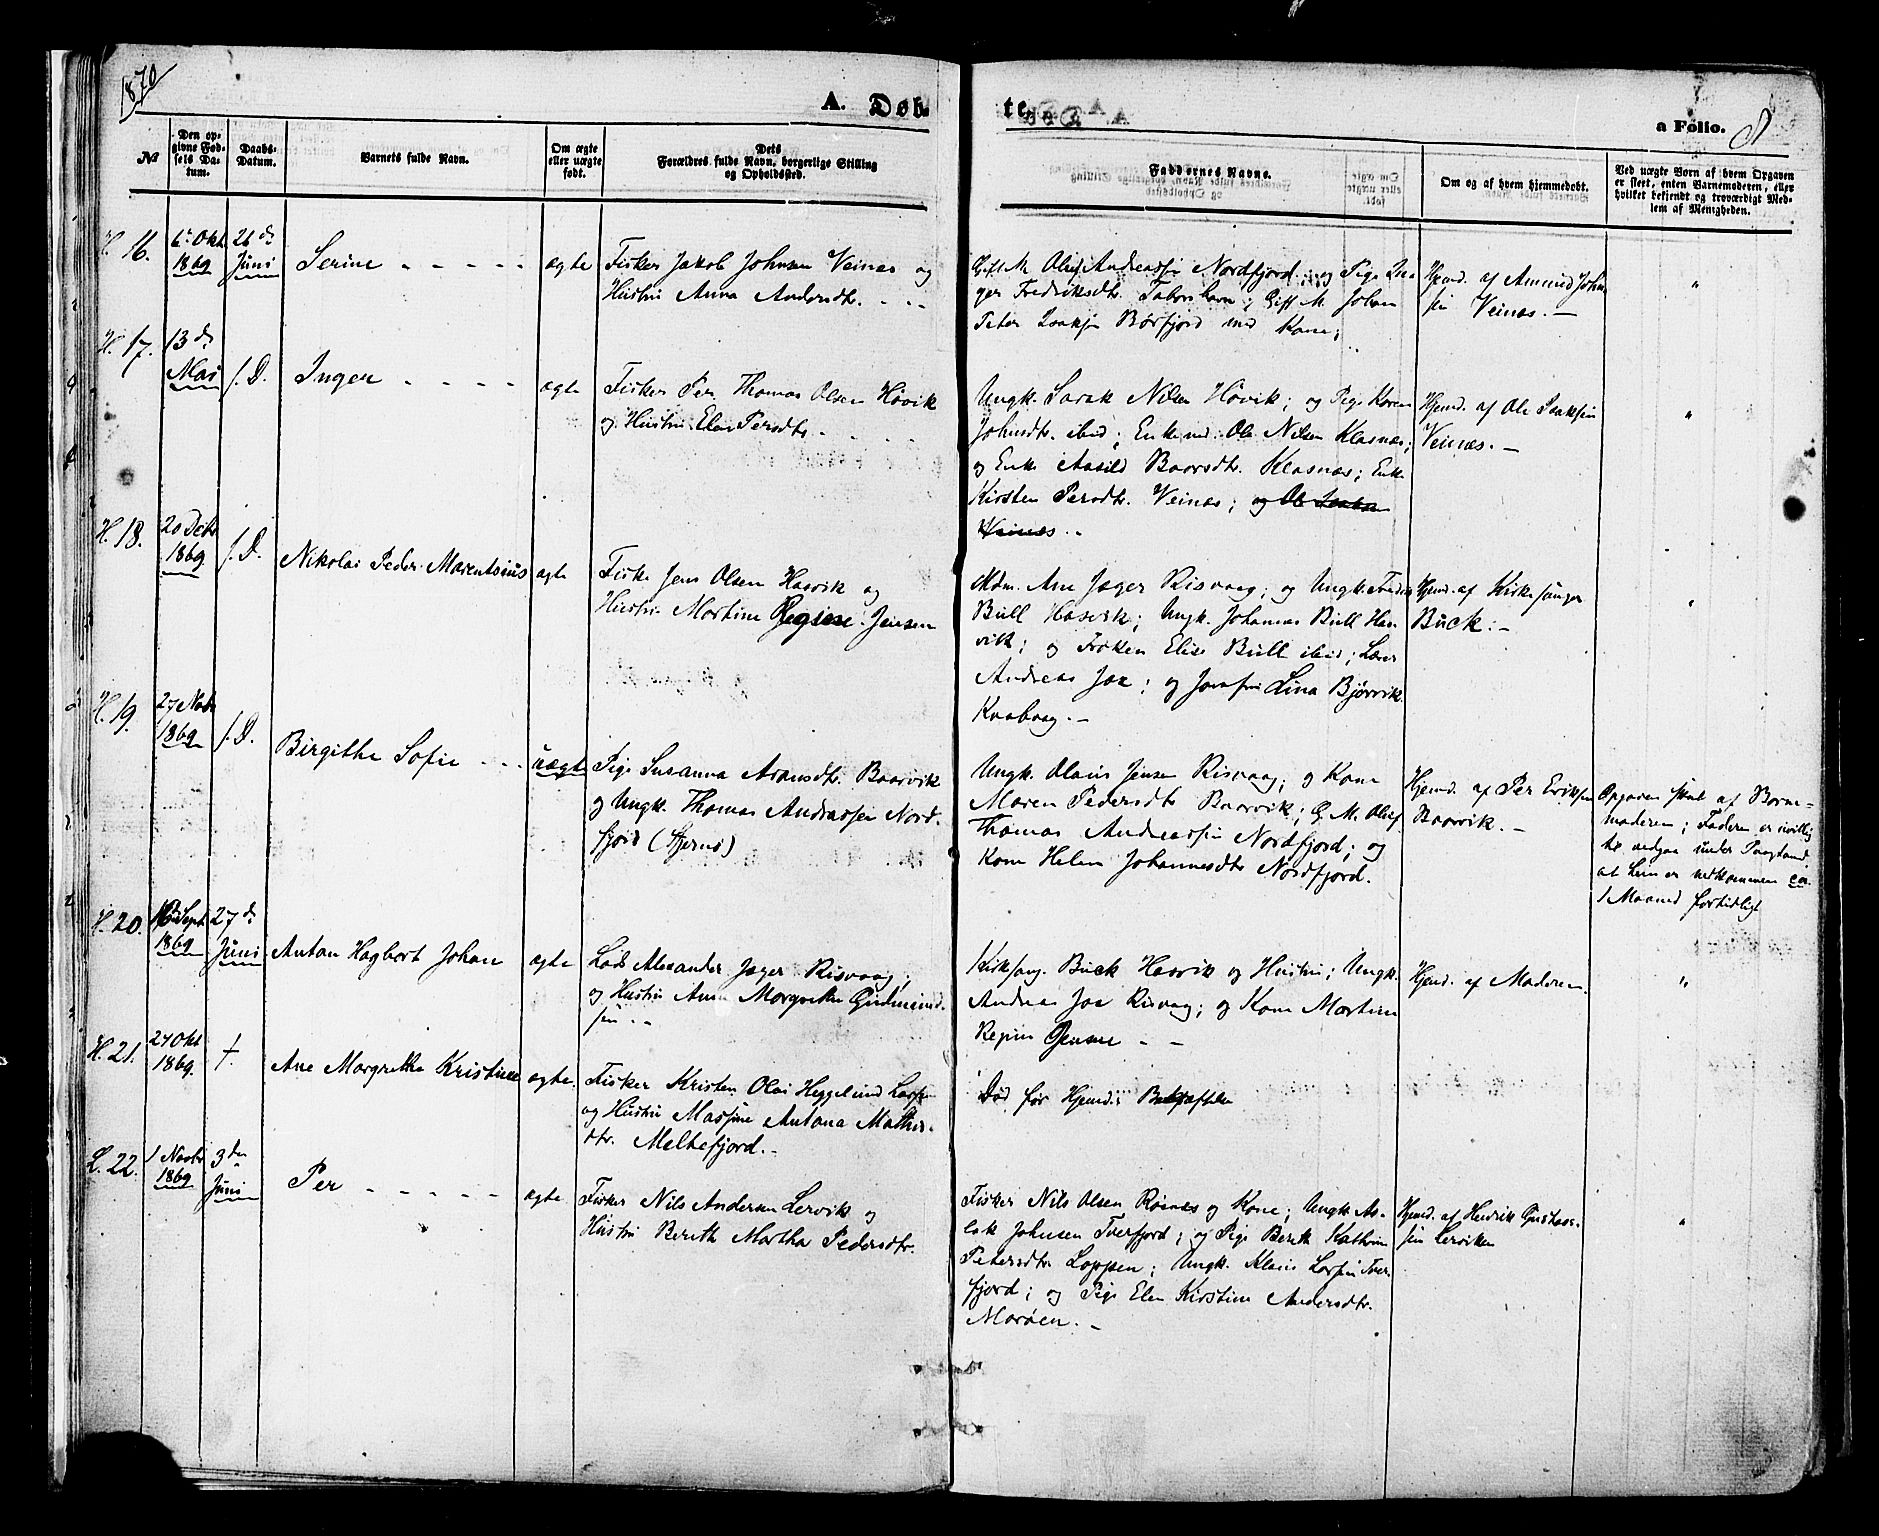 1870
A. Døb-
te,
a Folio. 8
№
Den op-
givne Fød-
sels Da-
tum.
Daabs-
Datum.
Barnets fulde Navn.
Om ægte
eller uægte
født.
Dets
Forældres fulde Navn, borgerlige Stilling
og Opholdssted.
Faddernes Navne.
Om og af hvem hjemmedøbt.
Ved uægte Børn af hvem Opgaven
er skeet, enten Barnemoderen, eller
hvilket bekjendt og troværdigt Med-
lem af Menigheden.
H. 16.
6te Okt
1869
26 de
Juni
Serine
ægte
Fisker Jakob Johnsen Veinæs og
Hustru Anna Andersdtr.
Gift M. Oluf Andreassen Nordfjord og Pige In-
ger Fredriksdtr. Taborshavn; Gift M. Johan
Peter Isaksen Børfjord med Kone;
Hjemd. af Amund John-
sen Veinæs. —
"
H. 17.
13 de
Mai
s. D.
Inger
ægte
Fisker Per Thomas Olsen Høvik
og Hustru Elen Persdtr.
Ungk. Sarak Nilsen Høvik; og Pige Karen
Johnsdtr. ibid; Enkemd. Ole Nilsen Klasnæs;
og Enke Aasild Baarsdtr. Klasnæs; Enke
Kirsten Persdtr. Veinæs; og Ole Isaksen
Veinæs. -
Hjemd. af Ole Isaksen
Veinæs. —
"
H. 18.
20 Debr
1869
s. D.
Nikolai Peder Marentsius
ægte
Fisker Jens Olsen Hasvik og
Hustru Martine Regine Jensen
Mdm. Ane Jæger Risvaag; og Ungk. Fredr
Bull Hasvik; Ungk. Johannes Bull Has-
vik; og Frøken Elise Bull ibid; Lærer
Andreas Jæ; og Jomfru Lina Bjørvik
Kvalvaag. —
Hjemd. af Kirkesanger
Buck. —
"
H. 19.
27 Nobr
1869
s. D.
Birgithe Sofie
uægte
Pige Susanna Aronsdtr. Baarvik
og Ungk. Thomas Andreassen Nord-
fjord (Stjernø)
Ungk. Olaus Jensen Risvaag; og Kone
Maren Pedersdtr Baarvik; G. M. Oluf
Thomas Andreassen Nordfjord; og
Kone Helene Johannesdtr Nordfjord.
Hjemd. af Per Eriksen
Baarvik. —
Opgaven skeet af Barne-
moderen; Faderen er uvillig
til vedgaa under Paastand
at hun er nedkommen ca.
1 Maaned fortidligt
H. 20.
16de Septr
1869
27 de
Juni
Anton Hagbart Johan
ægte
Lods Alexander Jæger Risvaag;
og Hustru Anne Margrethe Gudmund-
sen. -
Kirkesang. Buck Hasvik og Hustru; Ungk.
Andreas Jæ Risvaag; og Kone Martine
Regine Jensen - -
Hjemd. af Moderen.
"
H. 21.
24 Okt
1869.
†.
Ane Margrethe Kristine
ægte.
Fisker Kristen Olai Heggelund Larsen
og Hustru Massine Antona Mathis-
dtr. Melkefjord. —
Død før Hjemd: Bekræftelse
L. 22.
1 Novbr
1869
3 die
Juni
Per
ægte
Fisker Nils Andersen Lervik og
Hustru Bereth Martha Pedersdtr.
Fisker Nils Olsen Røsnæs og Kone; Ungk. As-
lak Johnsen Tverfjord; og Pige Bereth Kathrine
Petersdtr. Loppen; Ungk. Klaus Larsen Tver-
fjord; og Pige Elen Kirstine Andersdtr.
Marøen. —
Hjemd. af Hendrik Gustav-
sen Lerviken
"